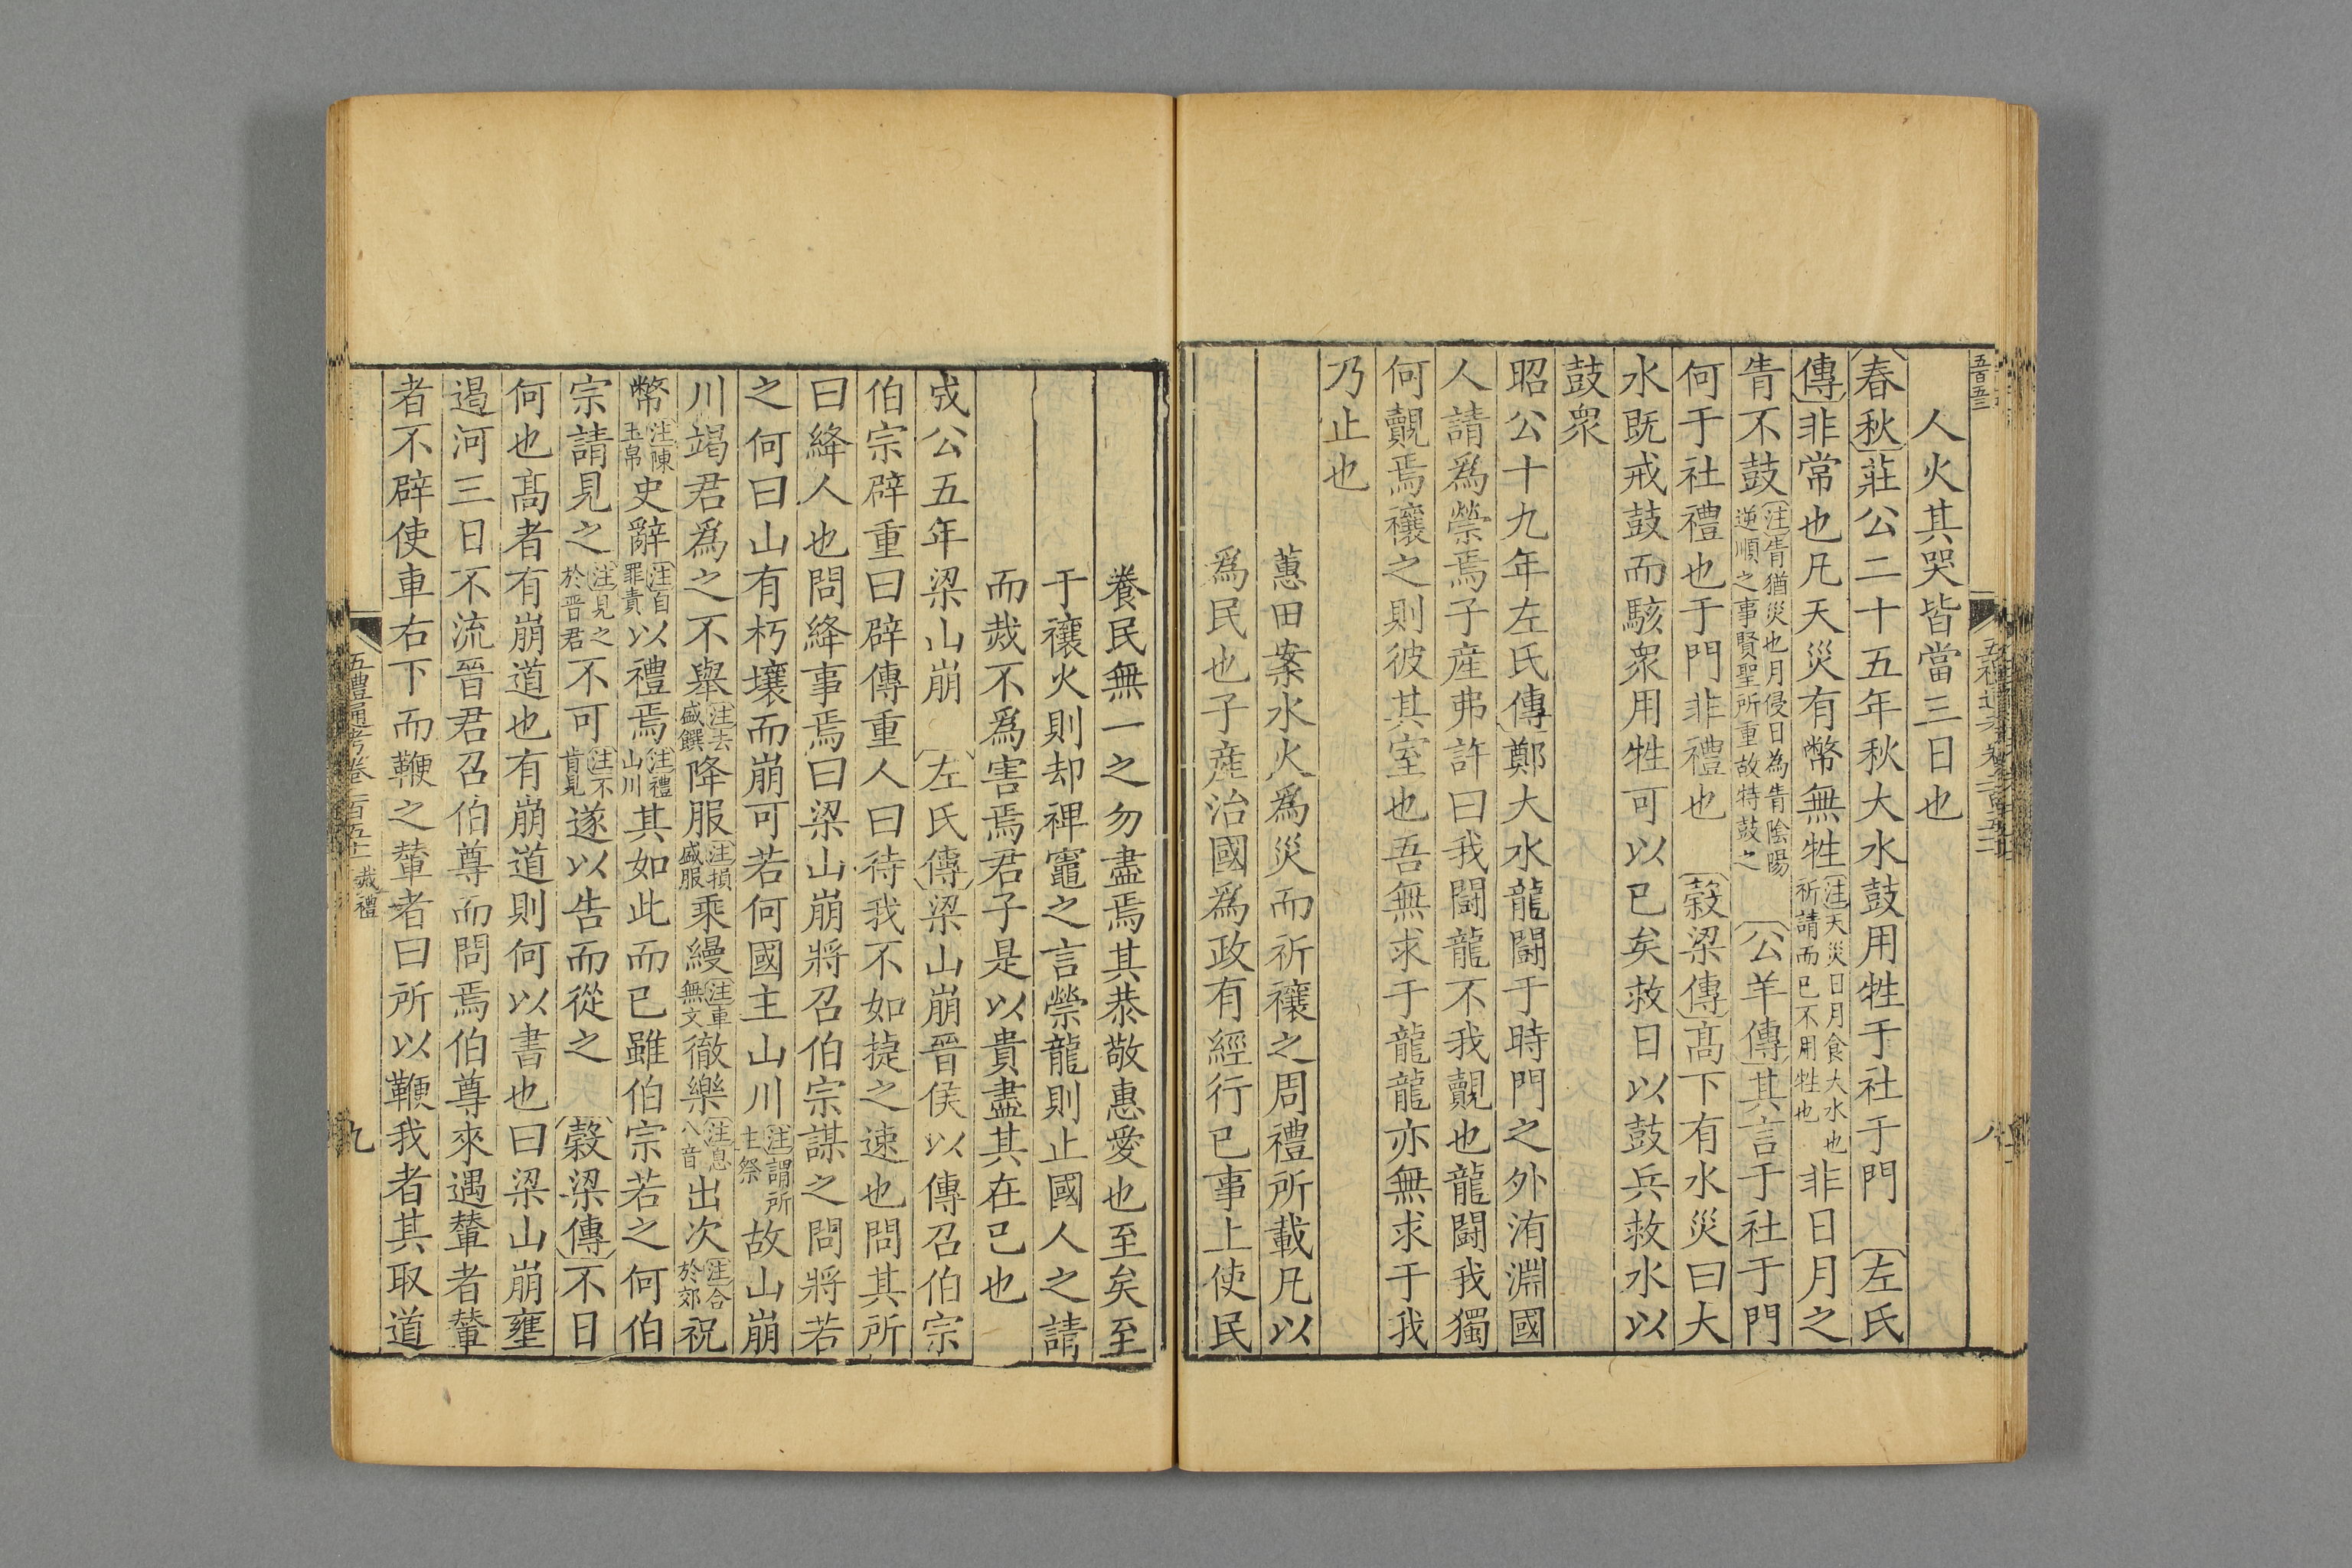 五百五三
人火其哭皆當三日也
春秋莊公二十五年秋大水鼓用牲于社于門　左氏
傳非常也凡天災有幣無牲注天災日月食大水也祈請而已不用牲也非日月之
眚不鼓注眚猶災也月侵日為眚陰陽逆順之事賢聖所重故特鼓之　公羊傳其言于社于門
何于社禮也于門非禮也　穀梁傳高下有水災曰大
水既戒鼓而駭衆用牲可以已矣救日以鼓兵救水以
鼓衆
昭公十九年左氏傳鄭大水龍鬭于時門之外洧淵國
人請爲禜焉子產弗許曰我鬭龍不我覿也龍鬭我獨
何覿焉禳之則彼其室也吾無求于龍龍亦無求于我
乃止也
蕙田案水火爲災而祈禳之周禮所載凡以
爲民也子產治國爲政有經行已事上使民
養民無一之勿盡焉其恭敬惠愛也至矣至
于禳火則却裨竈之言禜龍則止國人之請
而烖不爲害焉君子是以貴盡其在已也
成公五年梁山崩　左氏傳梁山崩晉侯以傳召伯宗
伯宗辟重曰辟傳重人曰待我不如捷之速也問其所
曰絳人也問絳事焉曰梁山崩將召伯宗謀之問將若
之何曰山有朽壤而崩可若何國主山川注謂所主祭故山崩
川竭君爲之不舉注去盛饌降服注損盛服乘縵注車無文徹樂注息八音出次注舍於郊祝
幣注陳玉帛史辭注自罪責以禮焉注禮山川其如此而已雖伯宗若之何伯
宗請見之注見之於晋君不可注不肯見遂以告而從之　穀梁傳不日
何也高者有崩道也有崩道則何以書也曰梁山崩壅
遏河三日不流晉君召伯尊而問焉伯尊來遇輦者輦
者不辟使車右下而鞭之輦者曰所以鞭我者其取道
五禮通考卷二百五十一 烖禮
九